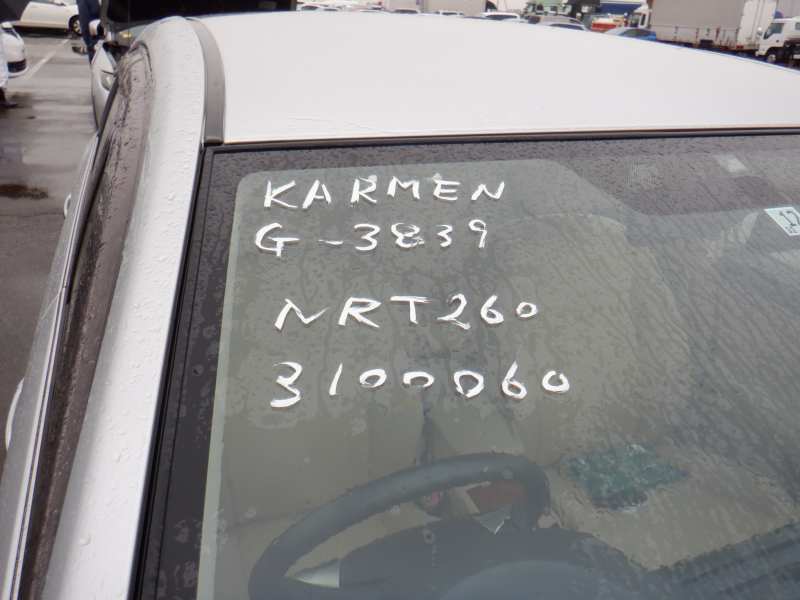 KARMEN
G-3839
NRT260
3100060